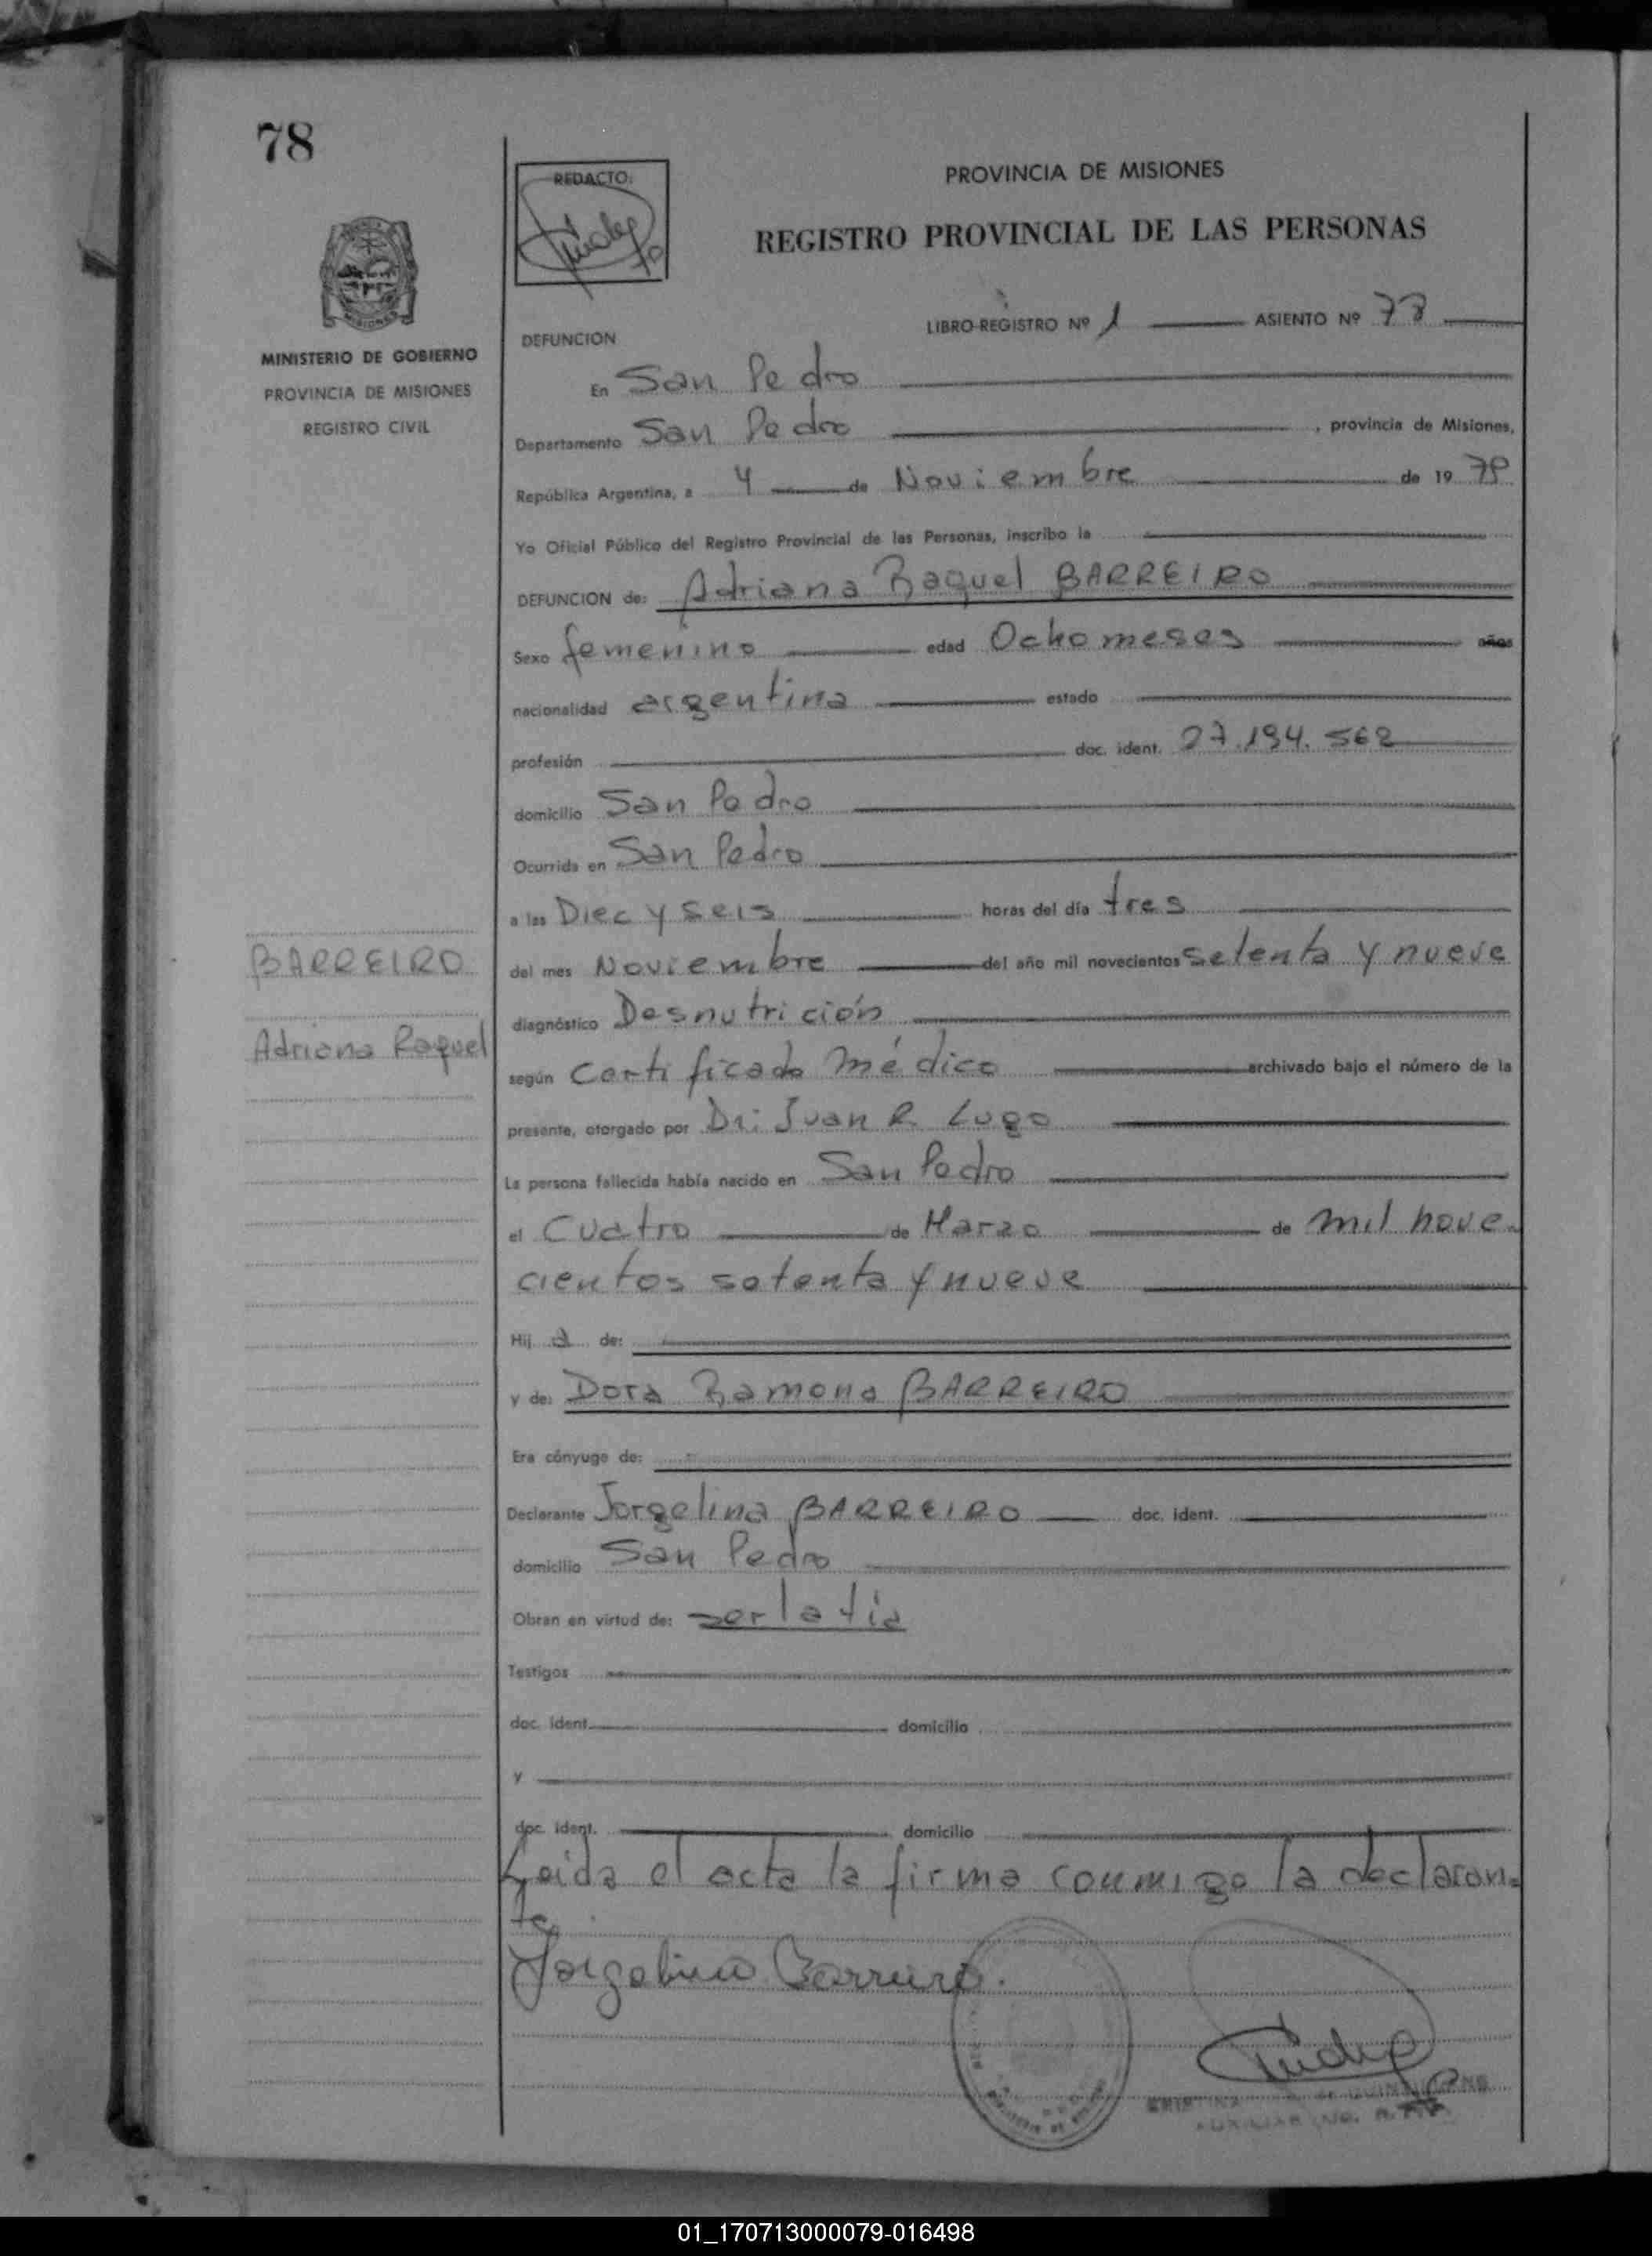 78
REDACTO:
PROVINCIA DE MISIONES
REGISTRO PROVINCIAL DE LAS PERSONAS
MISIONES
MINISTERIO DE GOBIERNO
PROVINCIA DE MISIONES
REGISTRO CIVIL
LIBRO-REGISTRO Nº 1 ASIENTO Nº 78
DEFUNCION
En San Pedro
Departamento San Pedro , provincia de Misiones,
República Argentina, a 4 de Noviembre de 19 79
Yo Oficial Público del Registro Provincial de las Personas, inscribo la
DEFUNCION de: Adriana Raquel BARREIRO
Sexo femenino edad Ocho meses años
nacionalidad argentina estado
profesión doc. ident. 27.194.562
domicilio San Pedro
Ocurrida en San Pedro
a las Diec y seis horas del día tres
del mes Noviembre del año mil novecientos setenta y nueve
diagnóstico Desnutrición
según Certificado Médico archivado bajo el número de la
presente, otorgado por Dr: Juan R. Lugo
La persona fallecida había nacido en San Pedro
el Cuatro de Marzo de mil nove-
cientos setenta y nueve
Hij a de:
y de: Dora Ramona BARREIRO
Era cónyuge de:
Declarante Jorgelina BARREIRO doc. ident.
domicilio San Pedro
Obran en virtud de: ser la tía
Testigos
doc. ident. domicilio
y
doc. ident. domicilio
Leida el acta la firma conmigo la declaran-
te.
Jorgelina Barreiro.
BARREIRO
Adriana Raquel
AUXILIAR
01_170713000079-016498